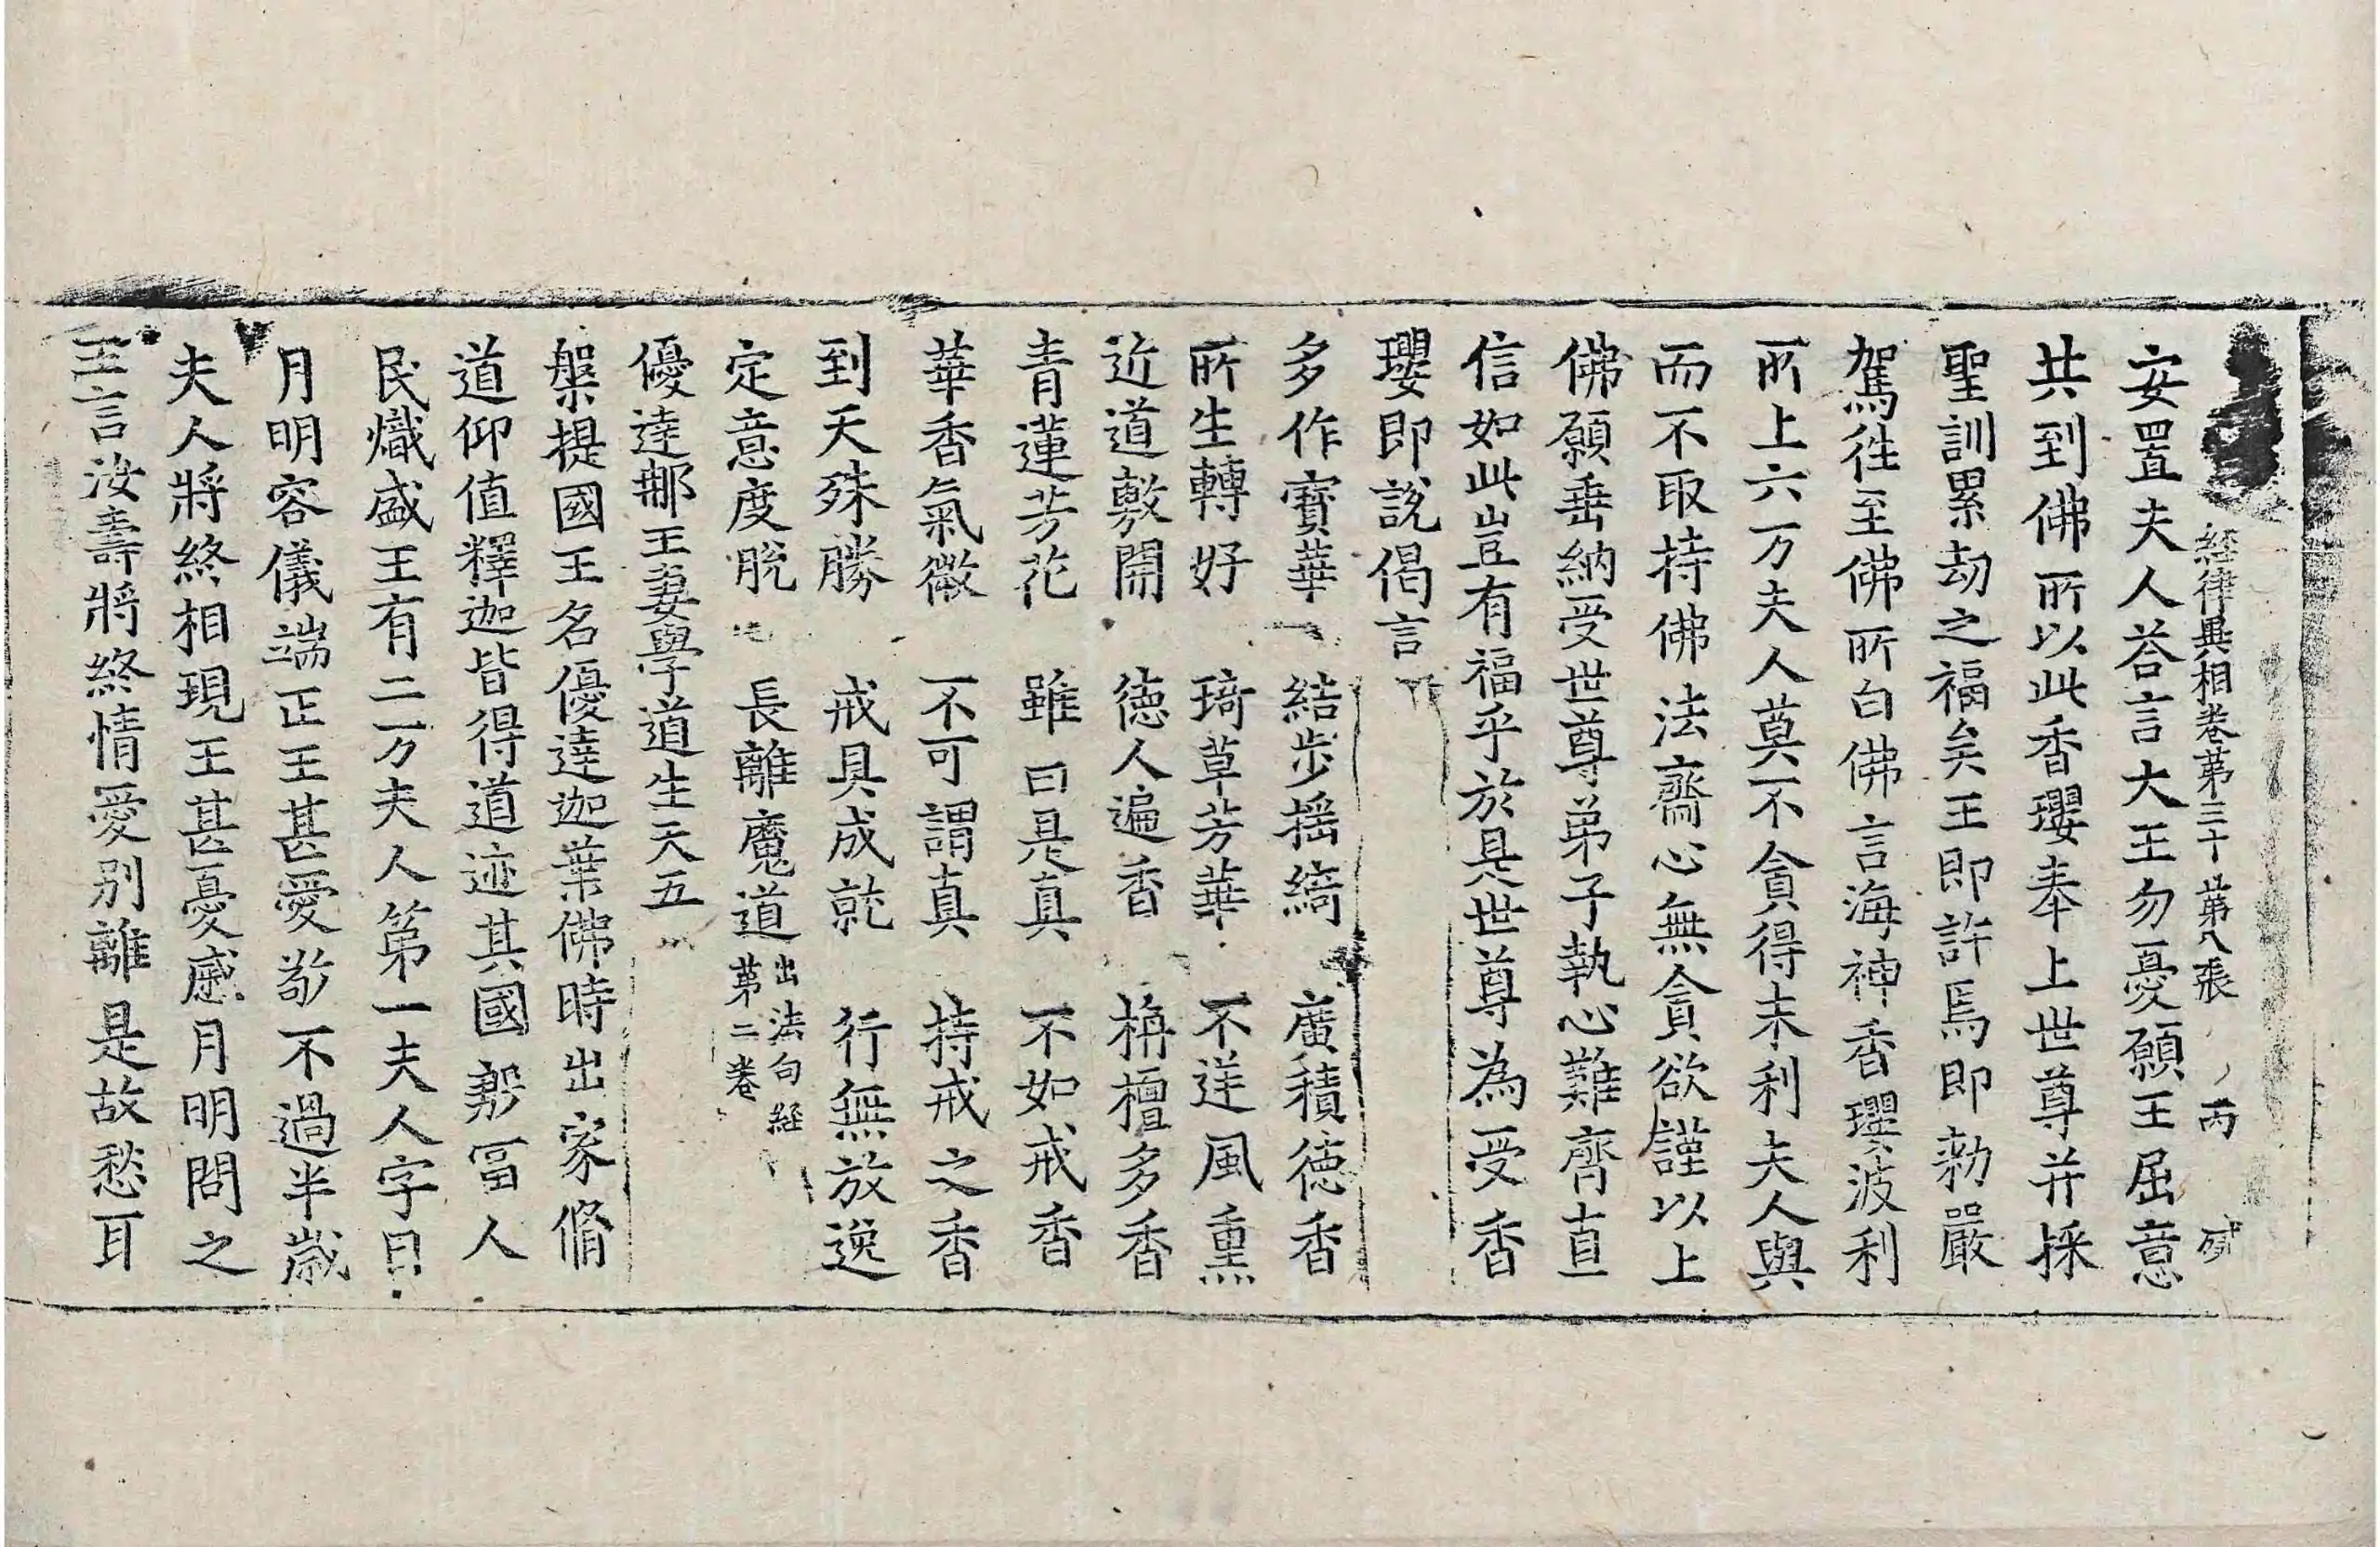 経律異相卷第三十 第八張 丙
安置夫人荅言大王勿憂願王屈意
共到佛所以此香瓔奉上世尊并採
聖訓累劫之福矣王即許焉即勑嚴
駕往至佛所白佛言海神香瓔波利
所上六万夫人莫不貪得末利夫人與
而不取持佛法齋心無貪欲謹以上
佛願垂納受世尊弟子執心難齊直
信如此豈有福乎於是世尊為受香
瓔即說偈言
多作寶華 結步揺綺 廣積德香
所生轉好 琦草芳華 不逆風熏
近道敷開 德人遍香 栴檀多香
青蓮芳花 雖曰是真 不如戒香
華香氣微 不可謂真 持戒之香
到天殊勝 戒具成就 行無放逸
定意度脫 長離魔道 出法句經第二卷
優達那王妻學道生天五
槃提國王名優達迦葉佛時出家脩
道仰值釋迦皆得道迹其國豐冨人
民熾盛王有二万夫人第一夫人字曰
月明容儀端正王甚愛敬不過半歲
夫人將終相現王甚憂慼月明問之
王言汝壽將終情愛別離是故愁耳